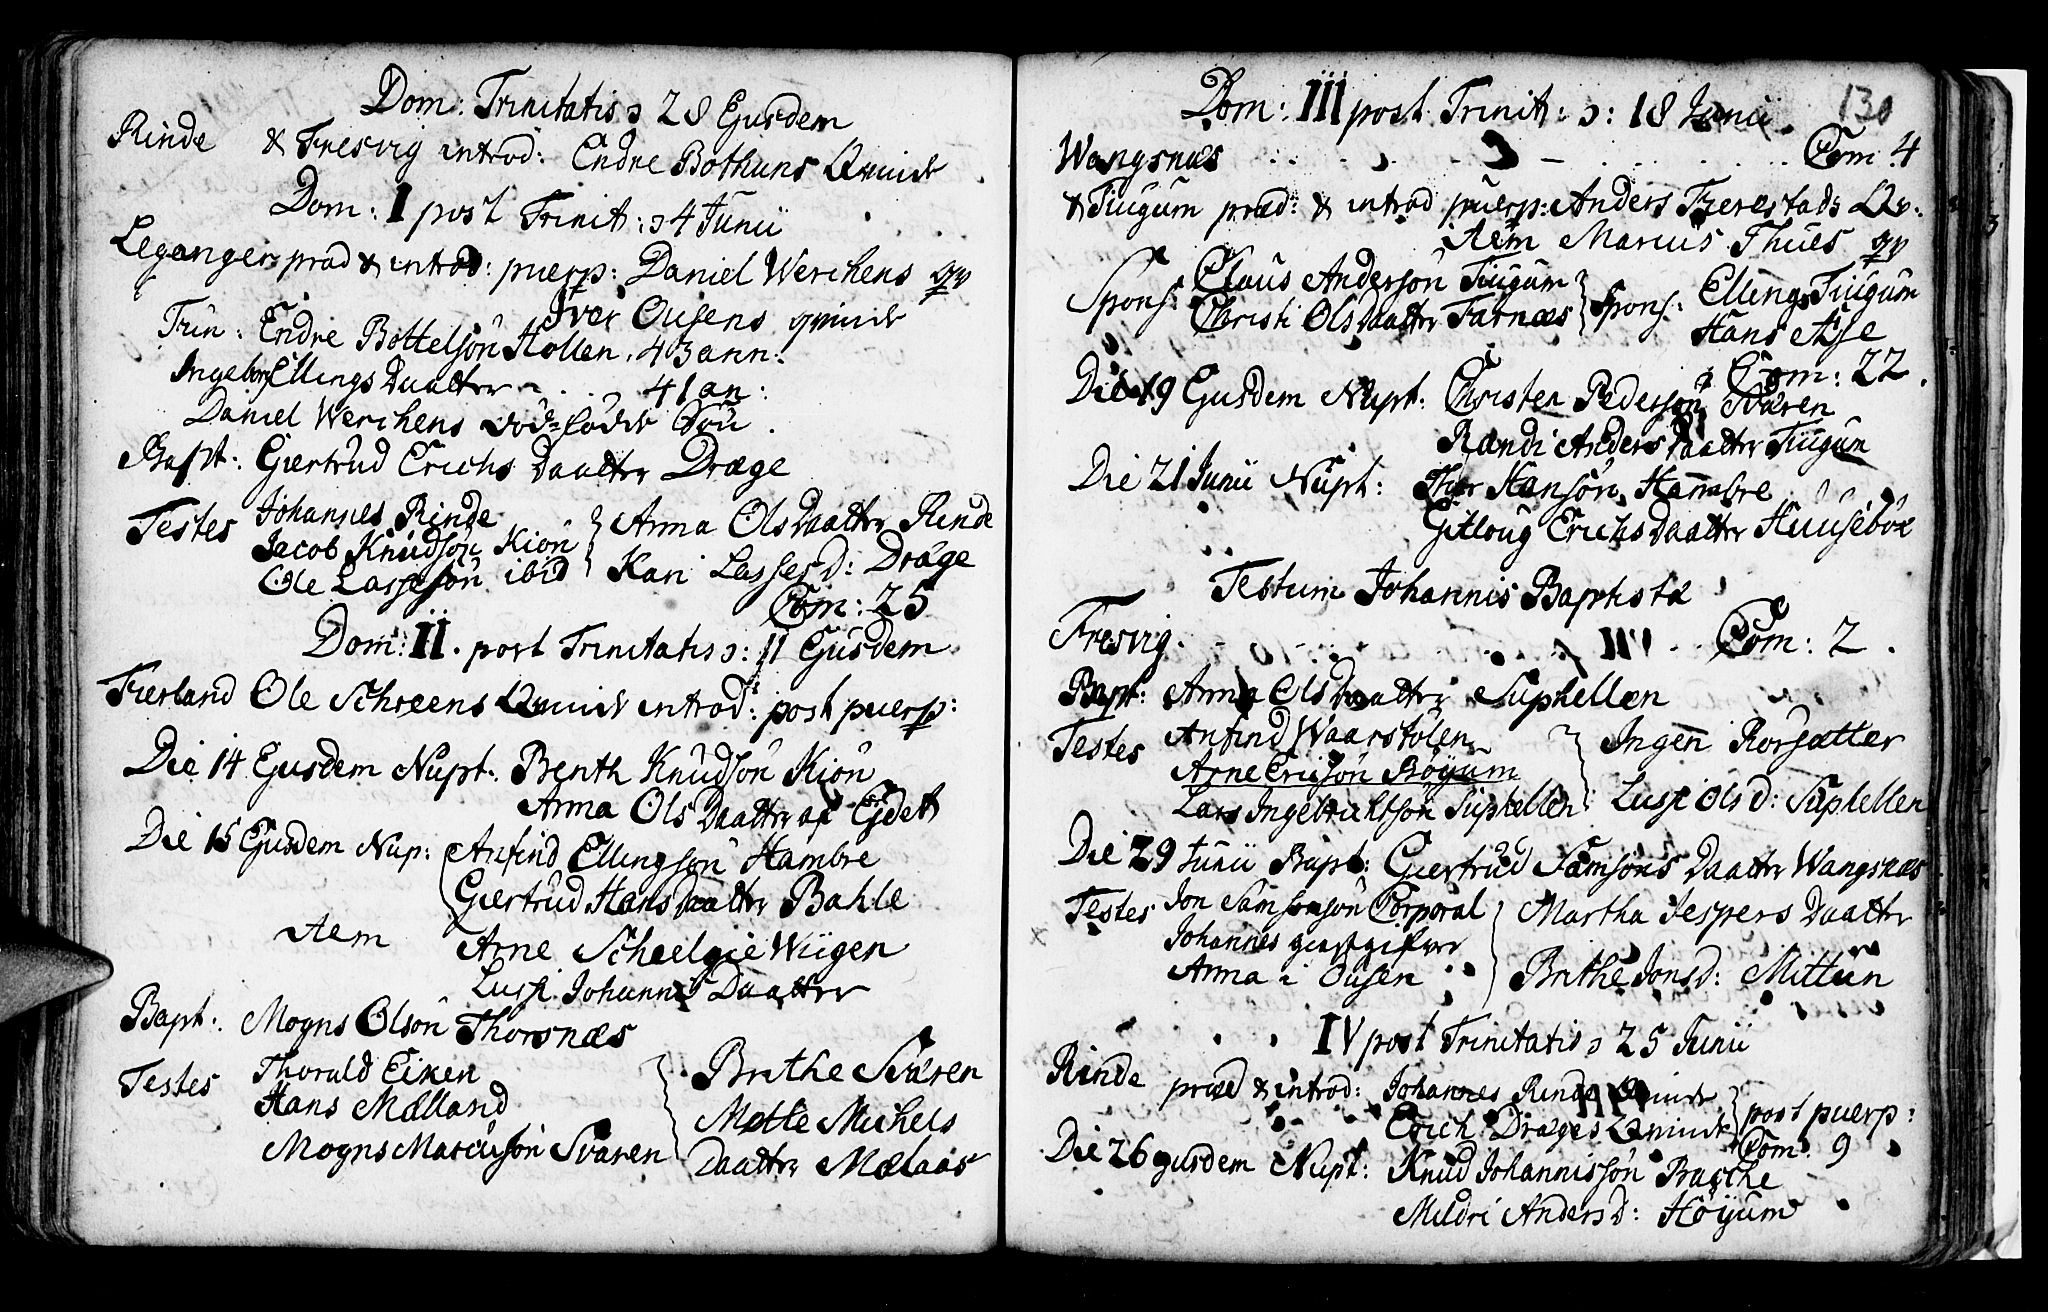 Dom: Trinitatis ɔ 28 Ejusdem
Rinde & Fresvig introd: Endre Bothuns Qvinde
Dom: I post Trinit: ɔ 4 Junii
Leganger præd & introd: puerp: Daniel Werchens qv
Iver Ousens qvinde
Fun: Endre Bottelsön Hollen. 43 ann:
Ingebor Ellings Daatter - . . . 41 an:
Daniel Werchens död-födde Sön.
Bapt: Giertrud Erichs Daatter Dræge
Testes Johannes Rinde
Jacob Knudsön Kion
Ole Lassesön ibid
Anna Ols Daatter Rinde
Kari Lasses d: Dräge
Com: 25
Dom: II. post Trinitatis ɔ: 11 Ejusdem
Fierland Ole Schreens Qvinde introd: post puerp:
Die 14 Ejusdem Nupt: Benth Knudsön Kion
Anna Ols Daatter af Ejdet
Die 15 Ejusdem Nup: Anfind Ellingsön Hambre
Giertrud Hans Daatter Bahle
Item Arne Scheelgie Wiigen
Lussi Johannis Daatter
Bapt: Mogns Olsön Thorsnæs
Testes Thorald Eiken
Hans Mælland
Mogns Marcusön Svären
Brithe Svären
Mette Michels
Daatter Mælaas
130
Dom: III post Trinit: ɔ: 18 Junii
Wangsnæs . . . . . . Com 4
& Tiugum præd: & introd puerp: Anders Ferestads Qv:
Item Marcus Thues qv
Spons: Claus Andersön Tiugum
Christi Ols Daatter Farnæs
Spons: Elling Tiugum
Hans Ase
Com: 22.
Die 19 Ejusdem Nupt: Christen Pedersön Svären
Randi Anders Daatter Tiugum
Die 21 Junii Nupt: Thor Hansön Hambre
Gitloug Erichs Daatter Huuseböe
Festum Johannis Baptistæ
Fresvig. . . . . . Com: 2.
Bapt: Anna Ols Daatter Suphellen
Testes Anfind Waarstölen
Arne Ericsön Böyum
Lars Ingebrichtsön Suphellen
Ingeñ Rorsætter
Lussi Ols d: Suphellen
Die 29 Junii Bapt: Giertrud Samsöns Daatter Wangsnæs
Testes Jon Samsonsön Corporal
Johannes giestgifver
Anna i Ousen
Martha Jespers Daatter
Brithe Jons d: Mittun
IV post Trinitatis ɔ 25 Junii
Rinde præd & introd: Johannes Rinde Qvinde
Erich Dræges Qvinde
post puerp:
Com. 9
Die 26 ejusdem Nupt: Knud Johannissön
Mildri Anders d: Höyum